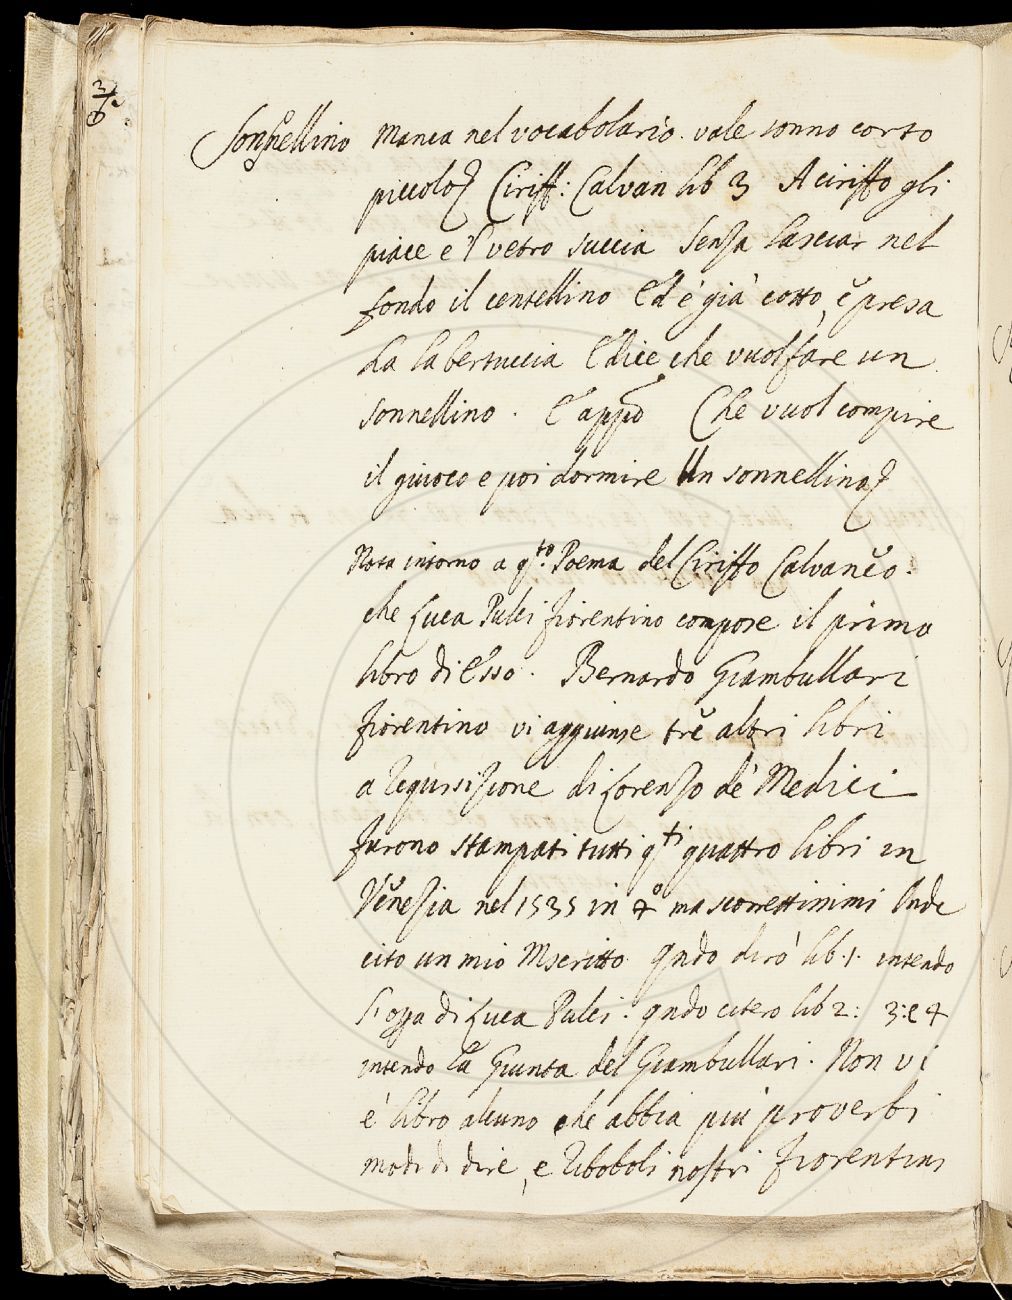 Sonnellino Manca nel vocabolario. vale sonno corto
piccolo Ciriff: Calvan lib 3 A ciriffo gli
piace e 'l vetro succia Senza lasciar nel
fondo il centellino Ed è già cotto, e presa
ha la bertuccia E dice che vuol fare un
sonnellino. E app.o Che vuol compire
il giuoco e poi dormire Un sonnellino
Nota intorno a q.to Poema del Ciriffo Calvaneo.
che Luca Pulci fiorentino compose il primo
libro di Esso. Bernardo Giambullari
fiorentino vi aggiunse tre altri libri
a requisizione di Lorenzo de' Medici
furono stampati tutti q.ti quattro libri in
Venezia nel 1535 in 4° ma scorrettissimi Onde
cito un mio Mscritto. qndo dirò lib. 1. intendo
l'opa di Luca Pulci: qndo citero lib 2: 3: e 4
intendo la Giunta del Giambullari. Non vi
è libro alcuno che abbia più proverbi
modi di dire, e riboboli nostri fiorentini